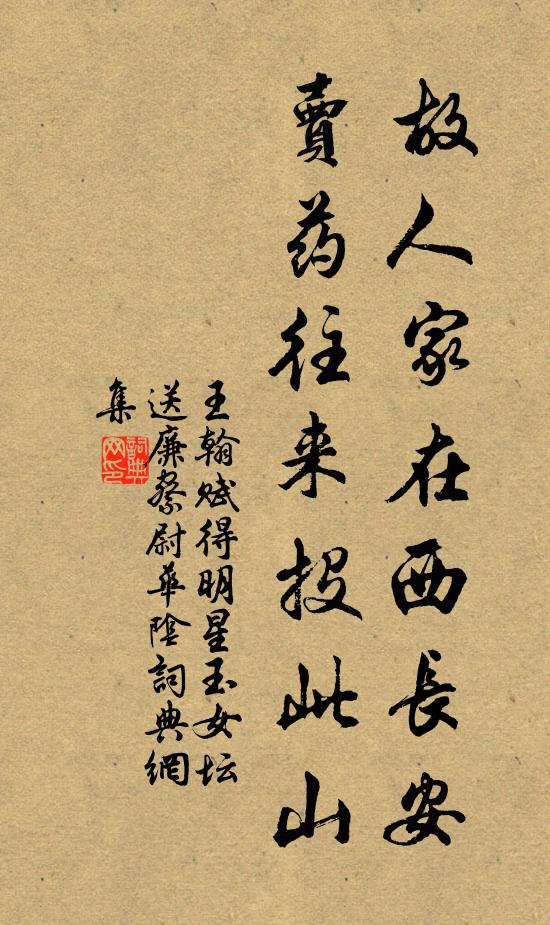 故人家在西長安
賣药往来投此山
王翰赋得明星玉女坛
送廉察尉華陰詞典網
集
詞典網印